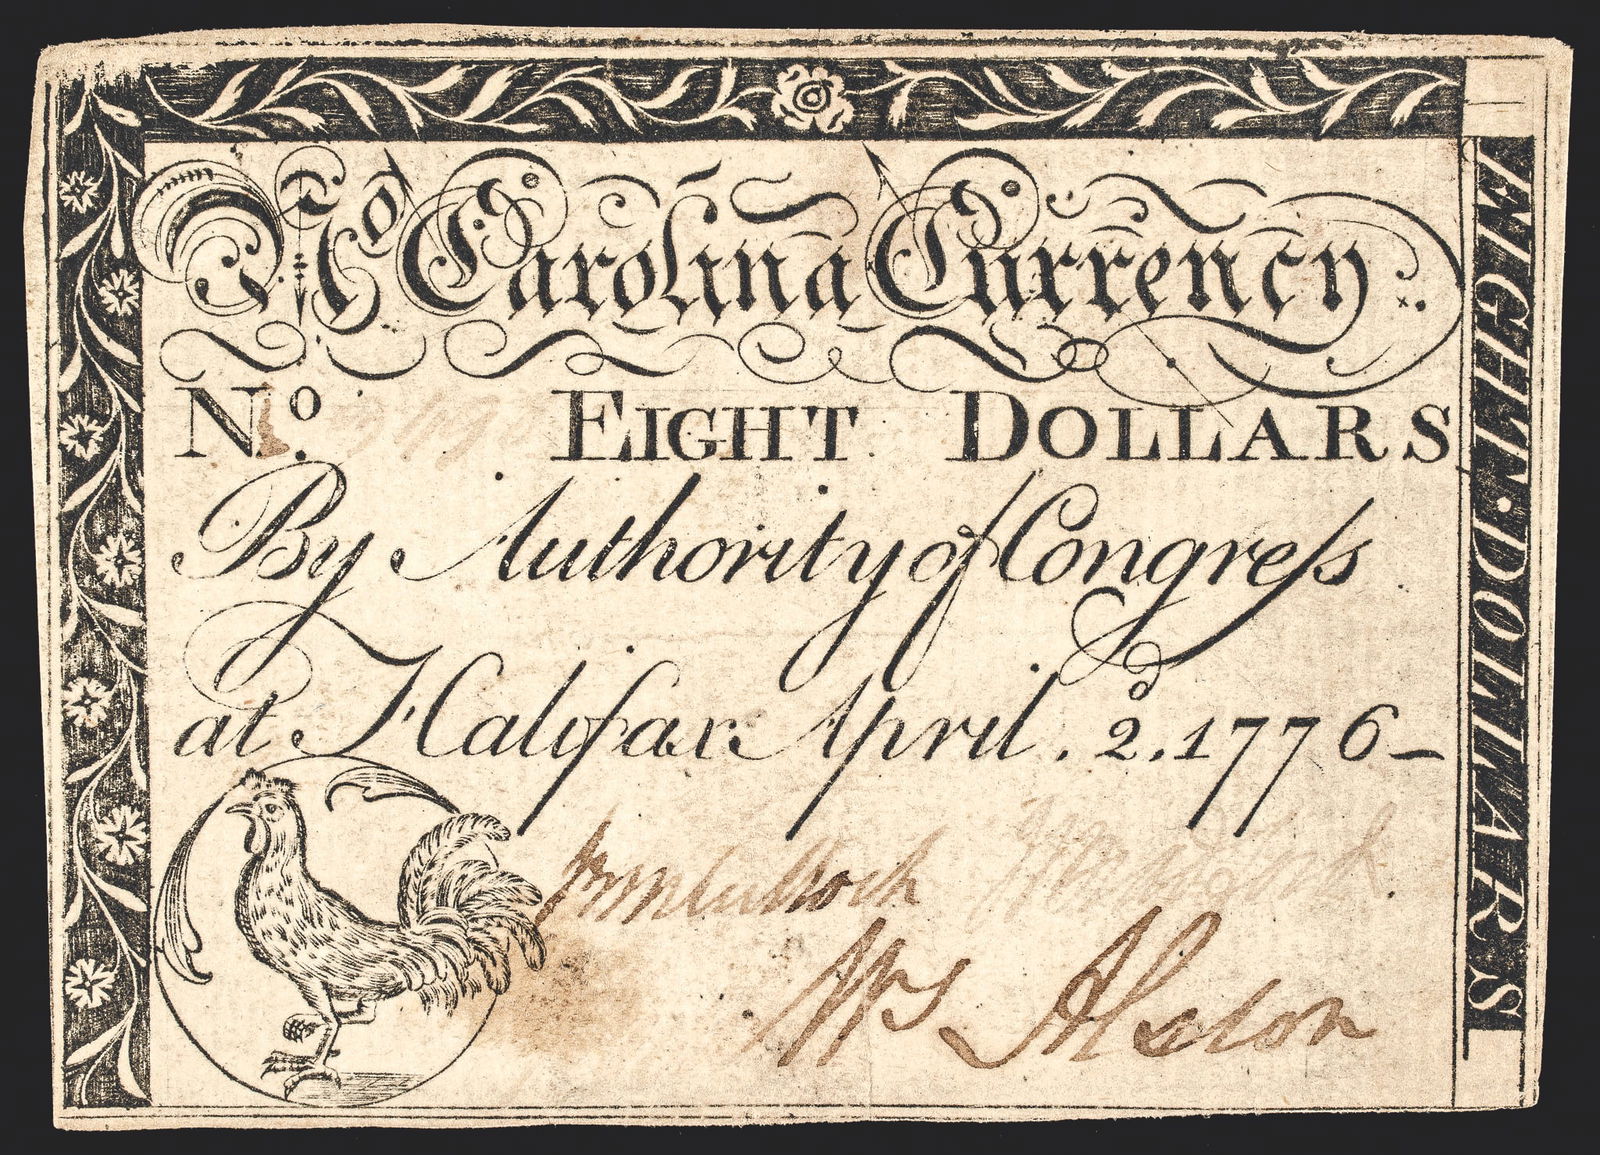 No Carolina Currency
No. EIGHT DOLLARS
By Authority of Congreſs
at Halifax April. 2d. 1776
Wm Alston
EIGHT·DOLLARS